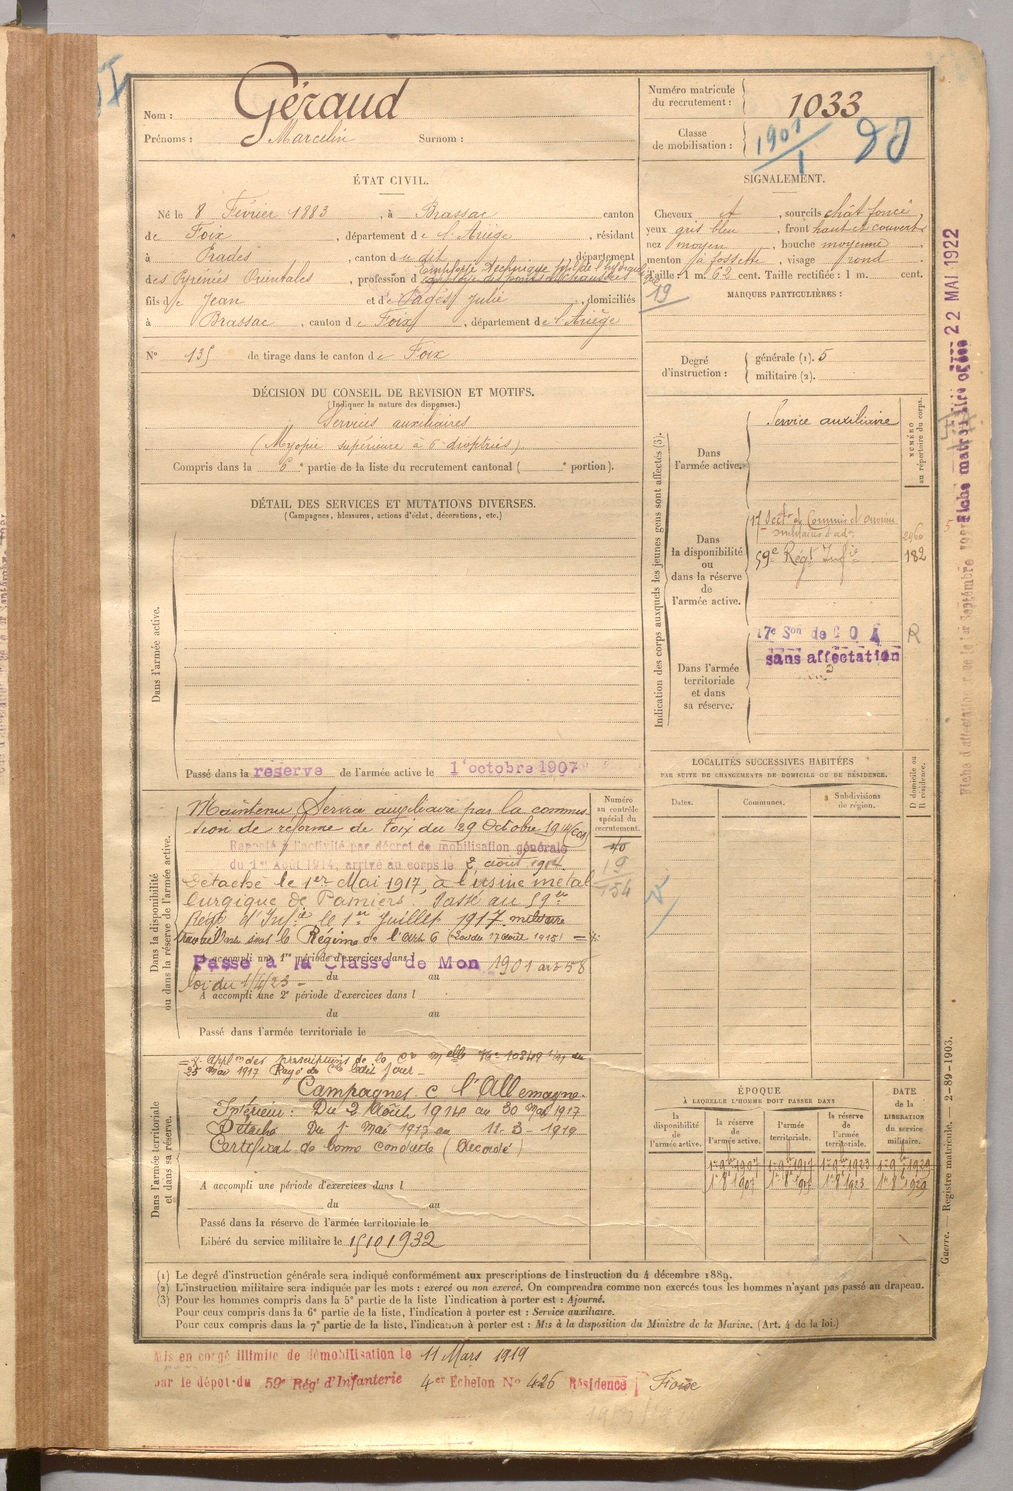 Nom : Géraud
Prénoms : Marcelin Surnom :
Numéro matricule du recrutement : 1033
Classe de mobilisation : 1901
1
ÉTAT CIVIL.
Né le 8 Février 1883, à Brassac canton
de Foix, département de l'Ariège, résidant
à Prades, canton du dit, département
des Pyrénées Orientales, profession d'Employé
fils de Jean et de Pagès Julie, domiciliés
à Brassac, canton de Foix, département de l'Ariège
N° 135 de tirage dans le canton de Foix
SIGNALEMENT.
Cheveux, sourcils chât foncé
yeux gris bleu, front haut et couvert
nez moyen, bouche moyenne
menton à fossette, visage rond
Taille : 1 m. 62 cent. Taille rectifiée : 1 m. cent.
19
MARQUES PARTICULIÈRES :
Degré d'instruction : générale (1). 5
militaire (2).
DÉCISION DU CONSEIL DE REVISION ET MOTIFS.
(Indiquer la nature des dispenses.)
Services auxiliaires
(Myopie supérieure à 6 dioptries)
Compris dans la 6e partie de la liste du recrutement cantonal ( e portion).
DÉTAIL DES SERVICES ET MUTATIONS DIVERSES.
(Campagnes, blessures, actions d'éclat, décorations, etc.)
Dans l'armée active.
Passé dans la réserve de l'armée active le 1er octobre 1907
Indication des corps auxquels les jeunes gens sont affectés (3).
NUMÉRO au répertoire du corps.
Dans l'armée active.
Service auxiliaire
Dans la disponibilité ou dans la réserve de l'armée active.
17e Secton de Commis et ouvriers
militaires d'adon
59e Régt Infie 182
Dans l'armée territoriale et dans sa réserve.
17e Son de C O A R
sans affectation
Dans la disponibilité ou dans la réserve de l'armée active.
Numéro au contrôle spécial du recrutement.
154
Maintenu Service auxiliaire par la commis
sion de réforme de Foix du 29 Octobre 1914
Rappelé à l'activité par décret de mobilisation générale
du 1er Août 1914, arrivé au corps le 2 août 1914.
Détaché le 1er Mai 1917, à l'usine métal
lurgique de Pamiers. Passé au 59e
Régt d'Infie le 1er Juillet 1917 militaire
travaillant sous le Régime de l'art 6 (Loi du 17 août 1915)
A accompli une 1re période d'exercices dans l
Passé à la Classe de Mon 1901 art 58
loi du 1/4/23
du au
A accompli une 2e période d'exercices dans l
du au
Passé dans l'armée territoriale le
LOCALITÉS SUCCESSIVES HABITÉES
PAR SUITE DE CHANGEMENTS DE DOMICILE OU DE RÉSIDENCE.
Dates. Communes. Subdivisions de région. D domicile ou R résidence.
Dans l'armée territoriale et dans sa réserve.
Campagnes c l'Allemagne.
Intérieur : Du 2 Août 1914 au 30 Mai 1917
Détaché Du 1er Mai 1917 au 11-3-1919
Certificat de bonne conduite (Accordé)
A accompli une période d'exercices dans l
du au
Passé dans la réserve de l'armée territoriale le
Libéré du service militaire le 15 10 1932
ÉPOQUE
À LAQUELLE L'HOMME DOIT PASSER DANS
la disponibilité de l'armée active. la réserve de l'armée active. l'armée territoriale. la réserve de l'armée territoriale.
DATE de la LIBÉRATION du service militaire.
(1) Le degré d'instruction générale sera indiqué conformément aux prescriptions de l'instruction du 4 décembre 1889.
(2) L'instruction militaire sera indiquée par les mots : exercé ou non exercé. On comprendra comme non exercés tous les hommes n'ayant pas passé au drapeau.
(3) Pour les hommes compris dans la 5e partie de la liste l'indication à porter est : Ajourné.
Pour ceux compris dans la 6e partie de la liste, l'indication à porter est : Service auxiliaire.
Pour ceux compris dans la 7e partie de la liste, l'indication à porter est : Mis à la disposition du Ministre de la Marine. (Art. 4 de la loi.)
Mis en congé illimité de démobilisation le 11 Mars 1919
par le dépôt du 59e Rég' d'Infanterie 4er Echelon N° 426 Résidence Foix
Guerre. — Registre matricule. — 2-89-1903.
22 MAI 1922